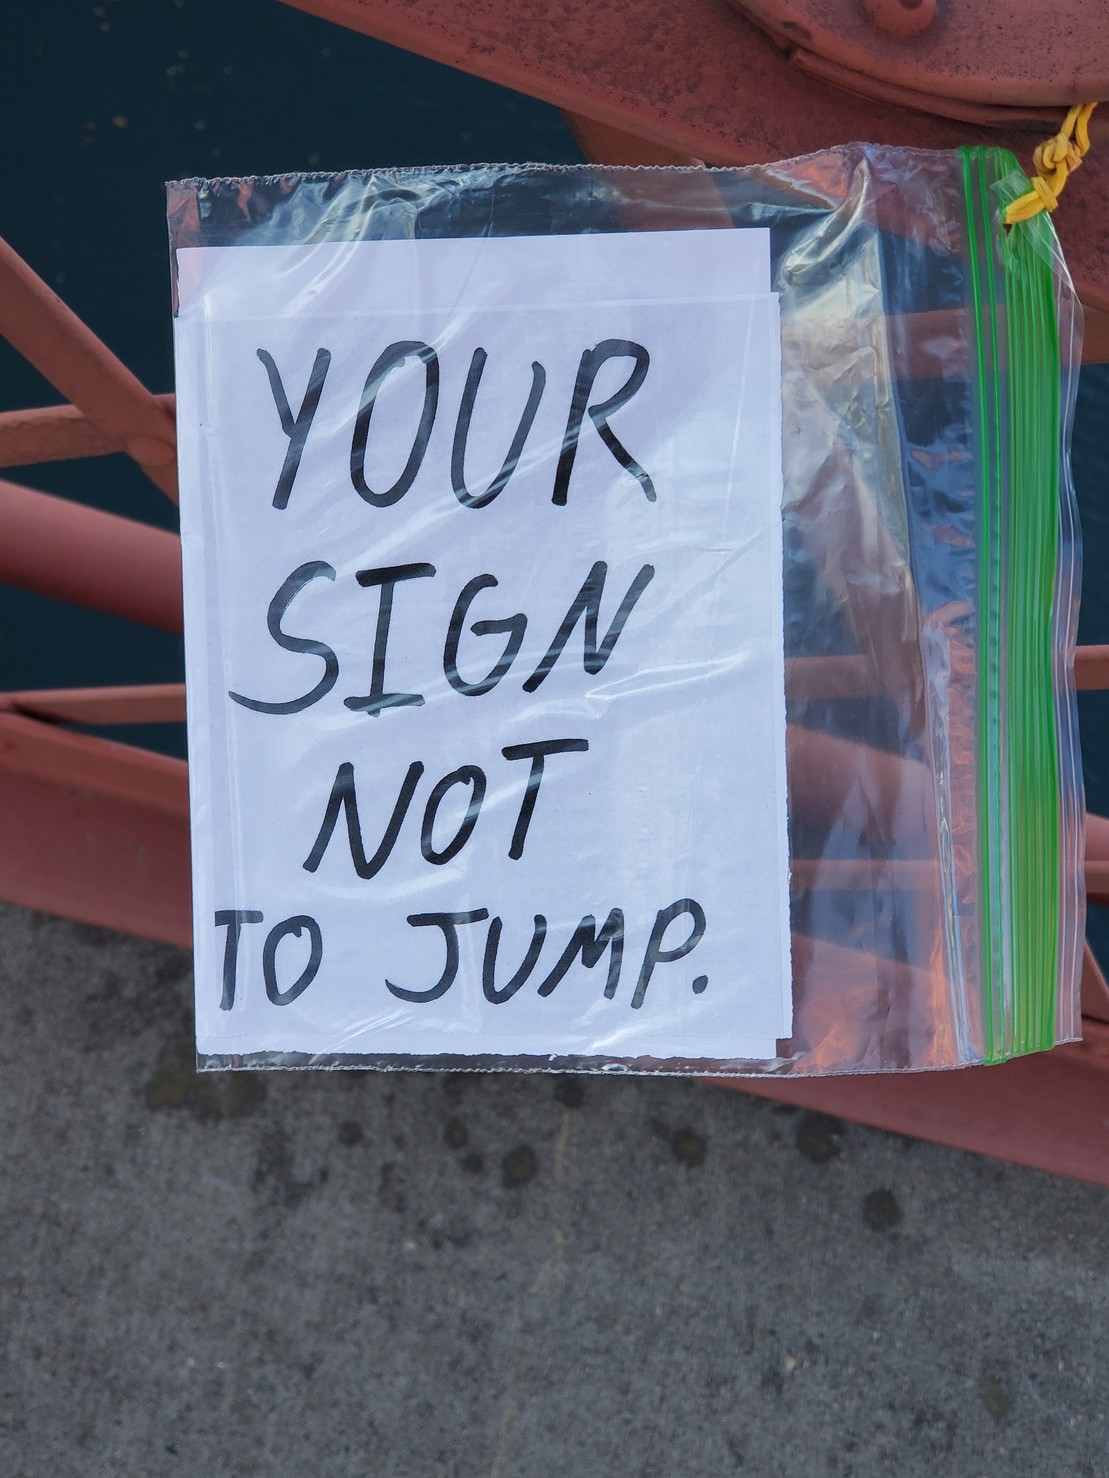 YOUR
SIGN
NOT
TO JUMP.